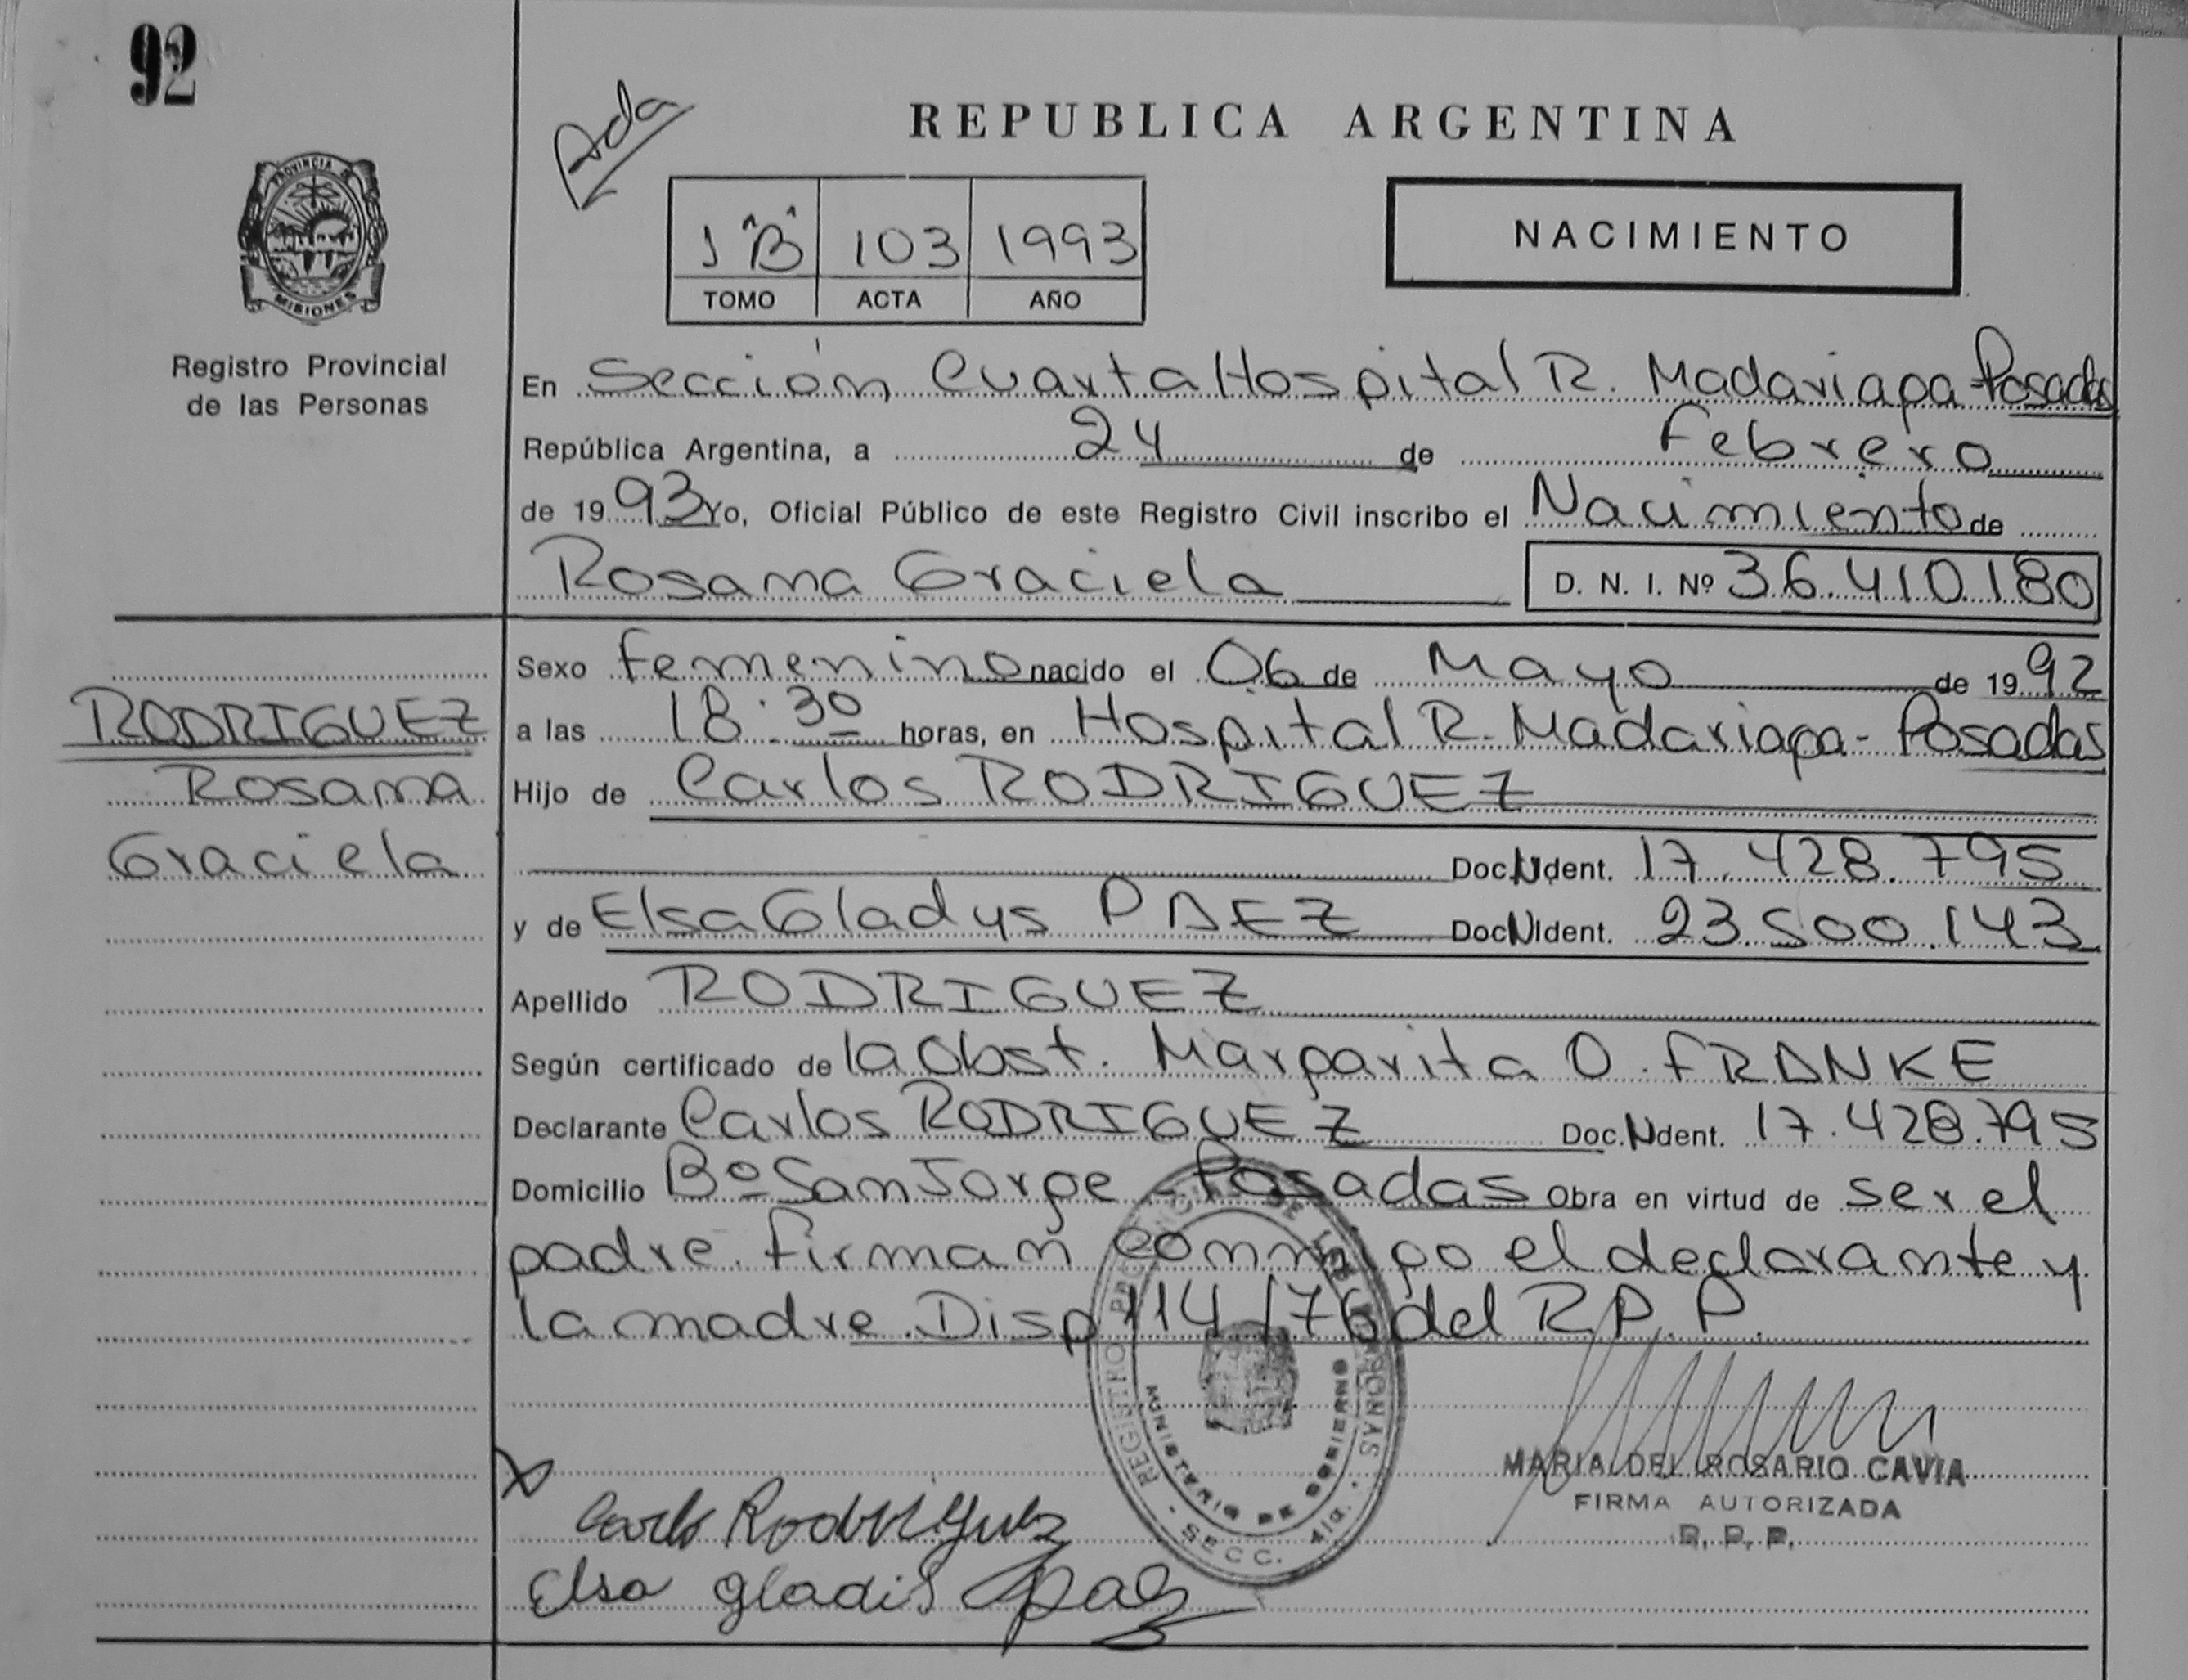 92
Ada
REPUBLICA ARGENTINA
PROVINCIA DE
MISIONES
Registro Provincial
de las Personas
1 "B" 103 1993
TOMO ACTA AÑO
NACIMIENTO
En Sección Cuarta Hospital R. Madariaga - Posadas
República Argentina, a 24 de Febrero
de 1993 Yo, Oficial Público de este Registro Civil inscribo el Nacimiento de
Rosana Graciela D. N. I. Nº 36.410.180
Sexo femenino nacido el 06 de Mayo de 1992
RODRIGUEZ
Rosana
Graciela
a las 18:30 horas, en Hospital R. Madariaga - Posadas
Hijo de Carlos RODRIGUEZ
Doc.N.Ident. 17.428.795
y de Elsa Gladys PAEZ Doc.N.Ident. 23.500.143
Apellido RODRIGUEZ
Según certificado de la Obst. Margarita O. FRANKE
Declarante Carlos RODRIGUEZ Doc.N.Ident. 17.428.795
Domicilio Bº San Jorge - Posadas Obra en virtud de ser el
padre. Firman conmigo el declarante y
la madre. Disp 114/76 del R.P.P.
REGISTRO PROVINCIAL DE LAS PERSONAS
MINISTERIO DE GOBIERNO
- SECC. 4ta. -
MARIA DEL ROSARIO CAVIA
FIRMA AUTORIZADA
R. P. P.
X
Carlos Rodriguez
Elsa Gladis Paez